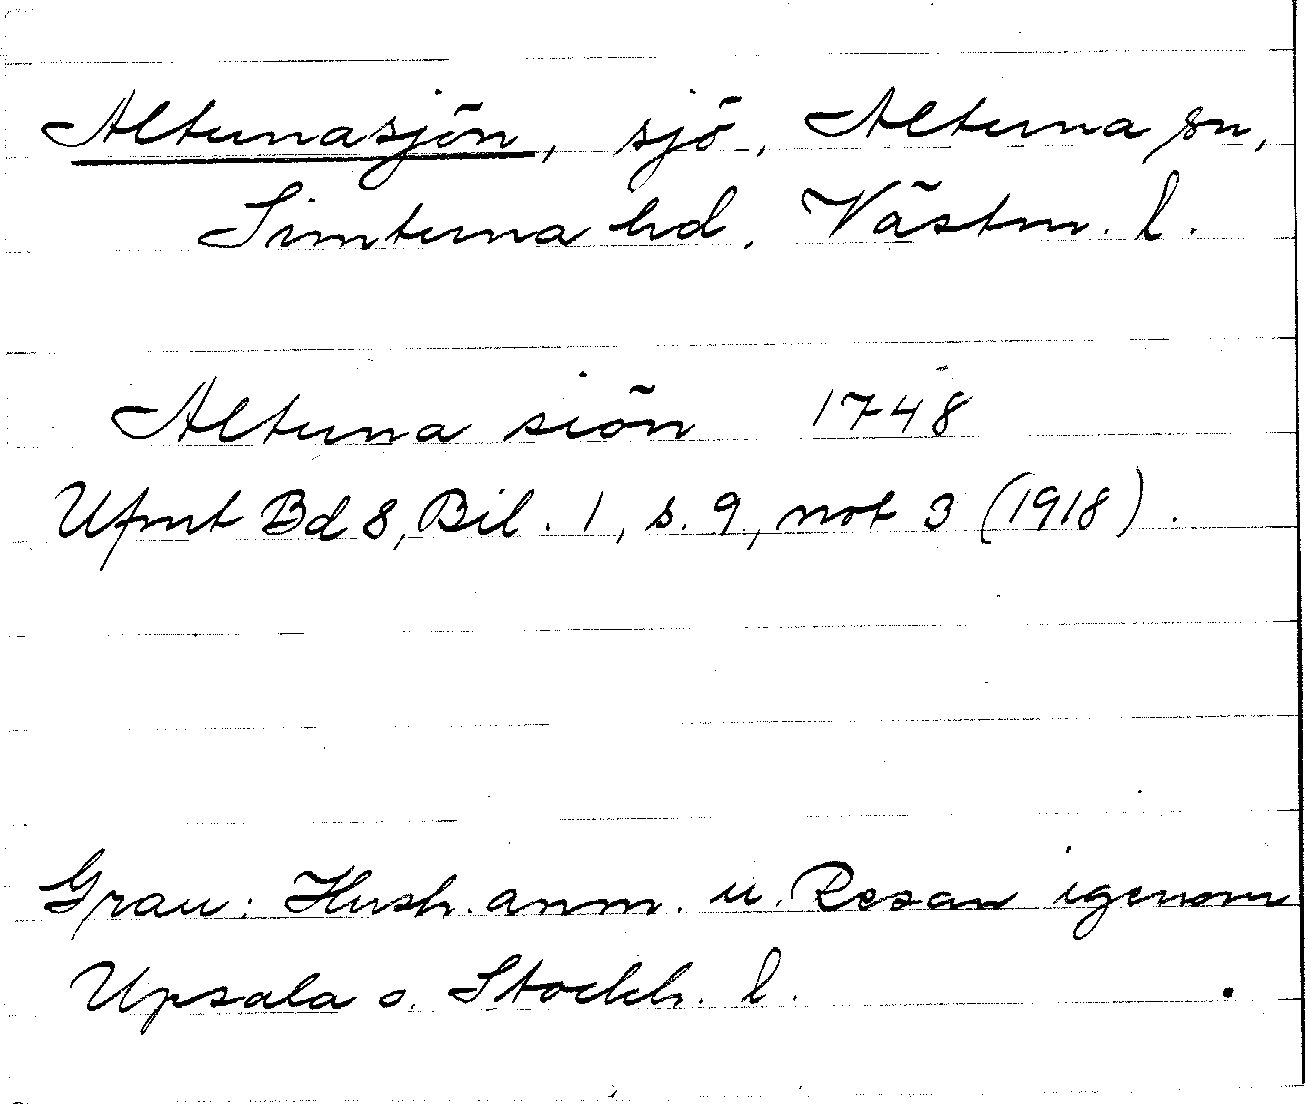 Altunasjön, sjö, Altuna sn,
Simtuna hd, Västm. l.
Altuna siön 1748
Ufmt Bd 8, Bil. 1, s. 9, not 3 (1918).
Grau: Hush. anm. u. Resan igenom
Upsala o. Stockh. l.